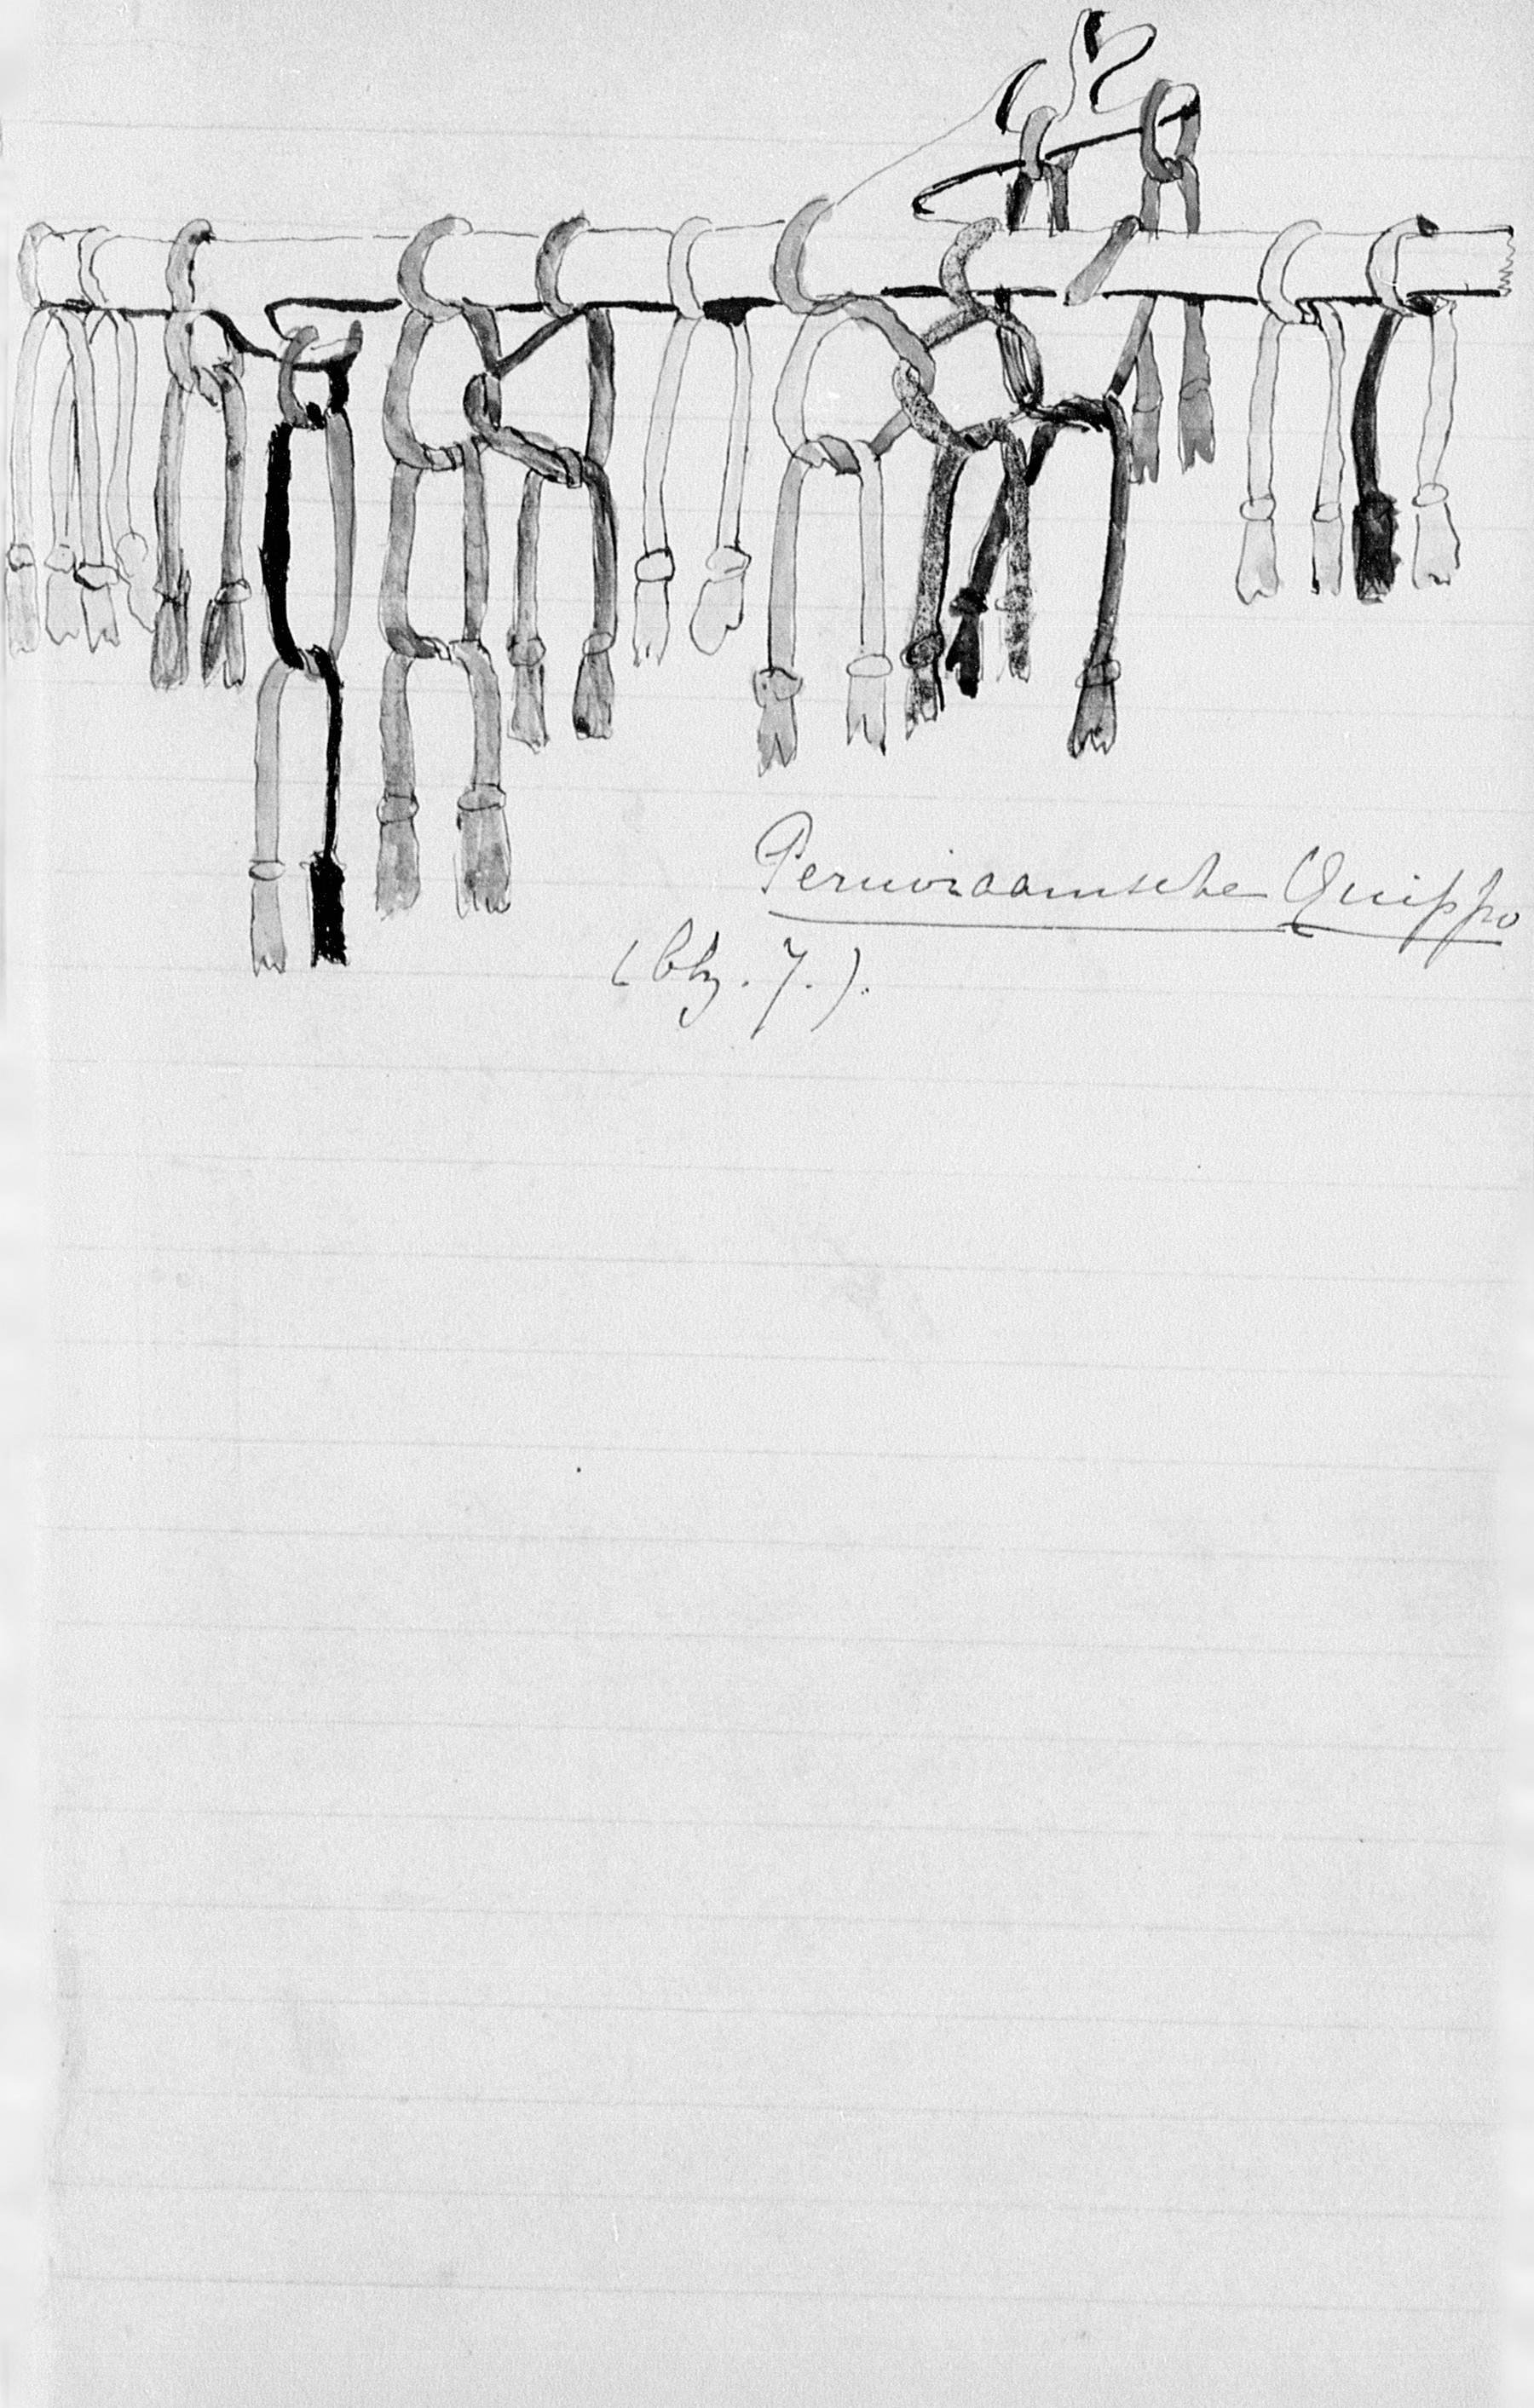 Peruviaansche Quippo
(blz. 7.).